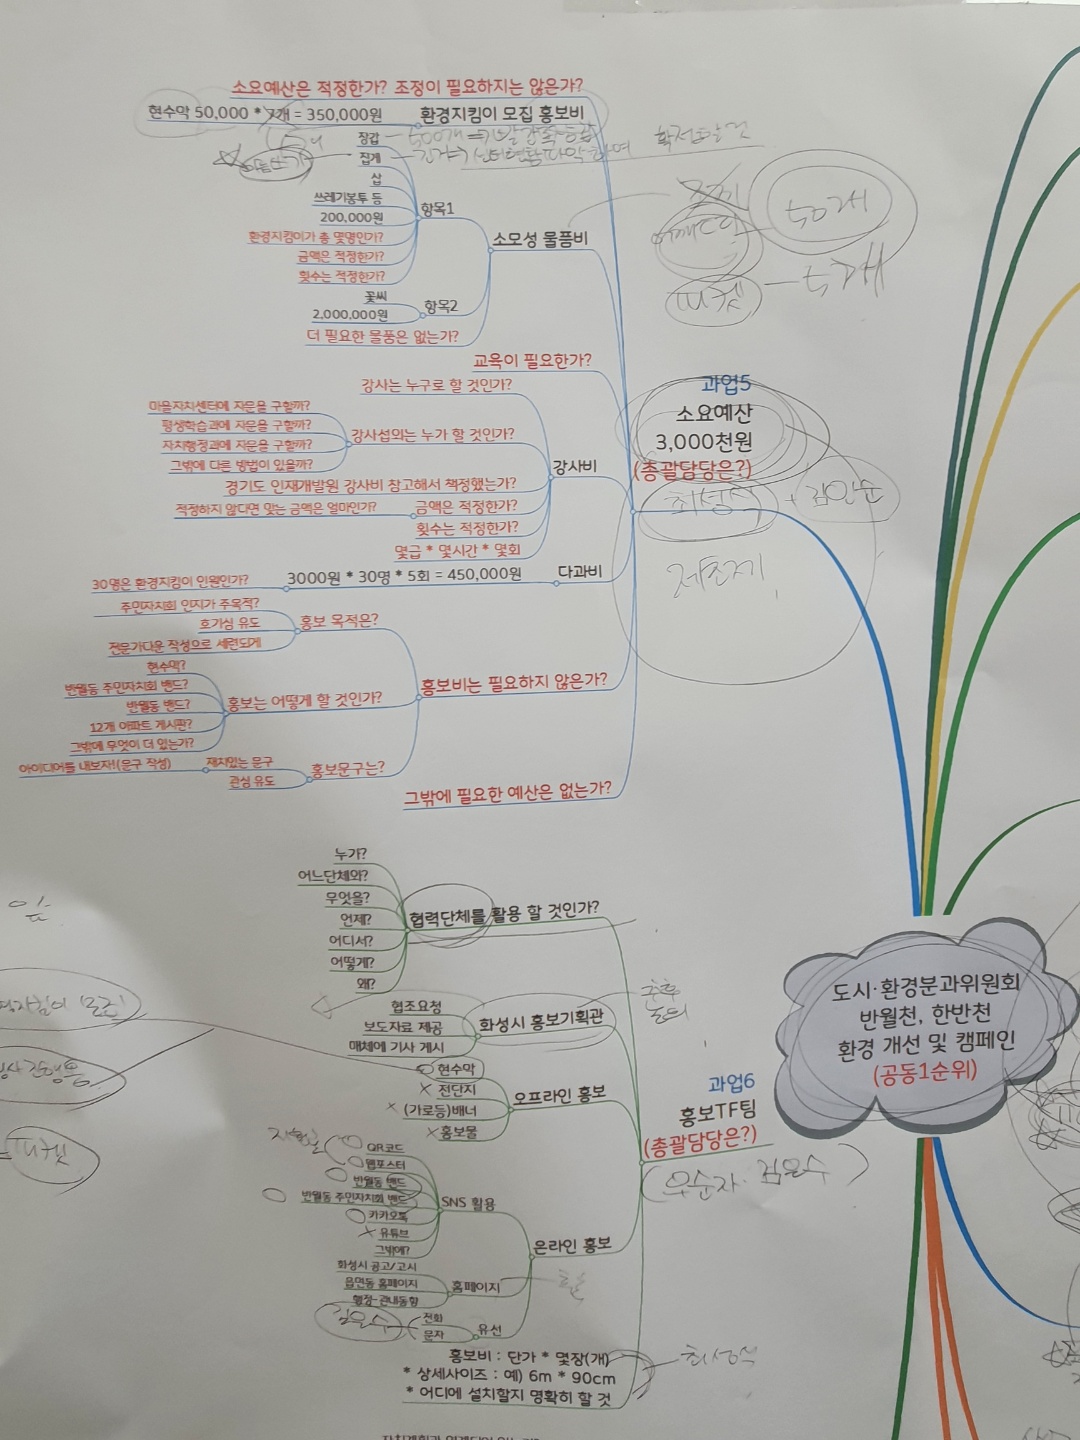 소요예산은 적정한가? 조정이 필요하지는 않은가?
현수막 50,000 * 7개 = 350,000원
환경지킴이 모집 홍보비
5개
장갑
500개
집게
삽
쓰레기봉투 등
200,000원
환경지킴이가 총 몇명인가?
금액은 적정한가?
횟수는 적정한가?
항목1
꽃씨
2,000,000원
항목2
더 필요한 물품은 없는가?
소모성 물품비
어깨띠
50개
피켓
5개
교육이 필요한가?
강사는 누구로 할 것인가?
마을자치센터에 자문을 구할까?
평생학습과에 자문을 구할까?
자치행정과에 자문을 구할까?
그밖에 다른 방법이 있을까?
강사섭외는 누가 할 것인가?
경기도 인재개발원 강사비 참고해서 책정했는가?
적정하지 않다면 맞는 금액은 얼마인가?
금액은 적정한가?
횟수는 적정한가?
몇급 * 몇시간 * 몇회
강사비
30명은 환경지킴이 인원인가?
3000원 * 30명 * 5회 = 450,000원
다과비
과업5
소요예산
3,000천원
(총괄담당은?)
최성식 + 김인순
제초제
주민자치회 인지가 주목적?
호기심 유도
전문가다운 작성으로 세련되게
홍보 목적은?
현수막?
반월동 주민자치회 밴드?
반월동 밴드?
12개 아파트 게시판?
그밖에 무엇이 더 있는가?
홍보는 어떻게 할 것인가?
아이디어를 내보자!(문구 작성)
재치있는 문구
관심 유도
홍보문구는?
홍보비는 필요하지 않은가?
그밖에 필요한 예산은 없는가?
누가?
어느단체와?
무엇을?
언제?
어디서?
어떻게?
왜?
협력단체를 활용 할 것인가?
협조요청
보도자료 제공
매체에 기사 게시
화성시 홍보기획관
추후
논의
현수막
전단지
(가로등)배너
홍보물
오프라인 홍보
QR코드
웹포스터
반월동 밴드
반월동 주민자치회 밴드
카카오톡
유튜브
그밖에?
SNS 활용
화성시 공고/고시
읍면동 홈페이지
행정-관내동향
홈페이지
전화
문자
유선
온라인 홍보
홍보비 : 단가 * 몇장(개)
* 상세사이즈 : 예) 6m * 90cm
* 어디에 설치할지 명확히 할 것
최성식
과업6
홍보TF팀
(총괄담당은?)
도시·환경분과위원회
반월천, 한반천
환경 개선 및 캠페인
(공동1순위)
피켓